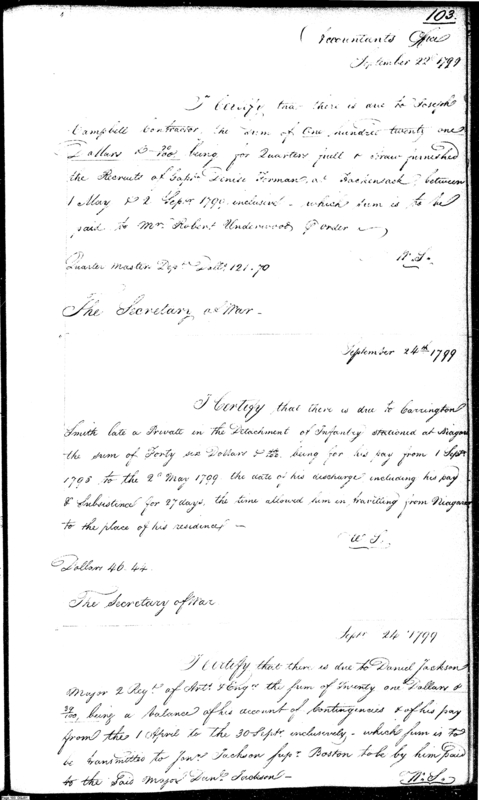 103.
Accountants Office
September 22d 1799
I Certify that there is due to Joseph
Campbell Contractor, the sum of One hundred twenty one
Dollars & 70/100, being for Quarters, fuel & straw furnished
the Recruits of Capt. Denise Forman, at Hackensack, between
1 May & 2 Sepr 1799, inclusive - which sum is to be
paid to Mr. Robert Underwood, order
W. S.
Quarter Master Dept. Dolls. 121.70
The Secretary of War -
September 24th 1799
I Certify that there is due to Carrington
Smith late a Private in the Detachment of Infantry stationed at Niagara
the sum of Forty six Dollars & 44/100 being for his pay from 1 Septr
1798 to the 2d May 1799 the date of his discharge including his pay
& Subsistence for 27 days, the time allowed him in travelling from Niagara
to the place of his residence -
W. S.
Dollars 46.44.
The Secretary of War
Septr 24 1799
I Certify that there is due to Daniel Jackson
Major 2 Regt. of Arts. & Engrs. the sum of Twenty one Dollars &
39/100, being a balance of his account of Contingencies & of his pay
from the 1 April to the 30 Septr. inclusively - which sum is to
be transmitted to Jonn. Jackson supr. Boston to be by him Paid
to the said Major Danl. Jackson -
W. S.